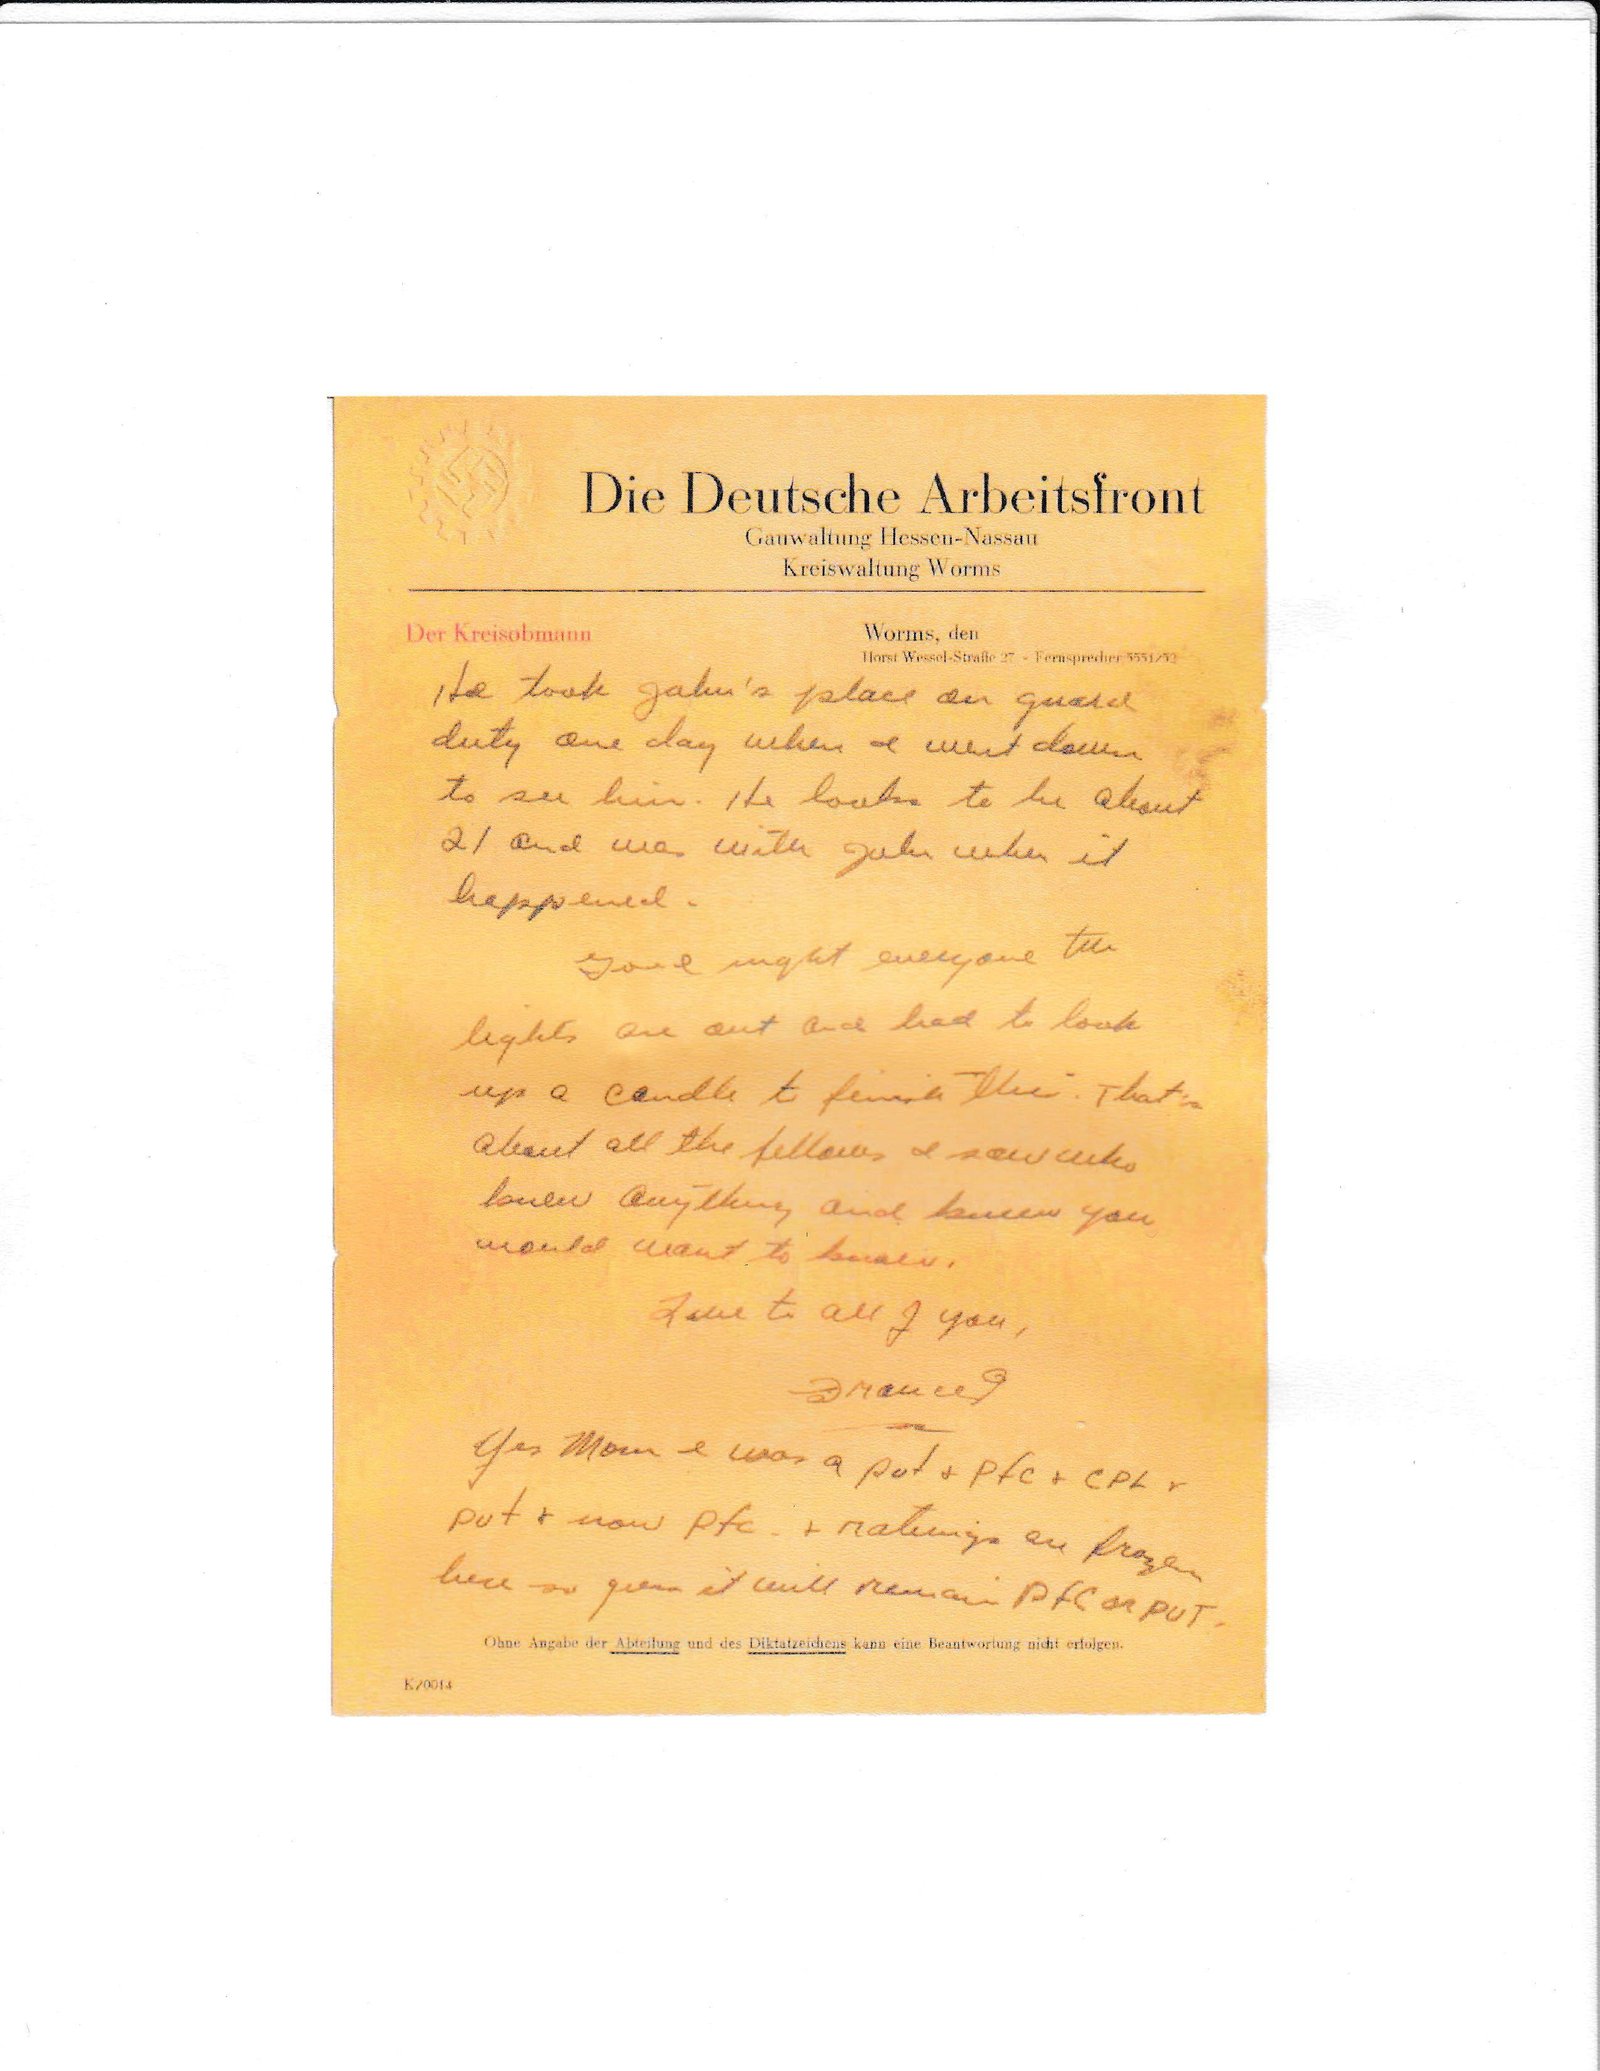 Die Deutsche Arbeitsfront
Gauwaltung Hessen-Nassau
Kreiswaltung Worms
Der Kreisobmann
Worms, den
Horst Wessel-Straße 27 - Fernsprecher 5551/52
He took John's place on guard
duty one day when I went down
to see him. He looks to be about
21 and was with John when it
happened.
Good night everyone the
lights are out and had to look
up a candle to finish this. That's
about all the fellows I saw who
knew anything and knew you
would want to know.
Love to all of you,
Yes Mom I was a pvt + Pfc + CPL +
pvt + now Pfc. + ratings are frozen
here so guess it will remain Pfc or PVT.
Ohne Angabe der Abteilung und des Diktatzeichens kann eine Beantwortung nicht erfolgen.
K/0014